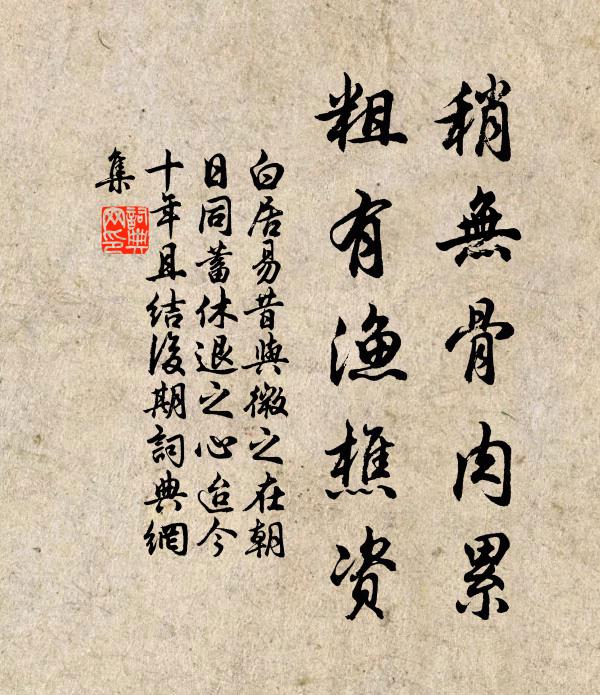 稍無骨肉累
粗有漁樵資
白居易昔與微之在朝
日同蓄休退之心迨今
十年且結後期詞典網
集
詞典
网印